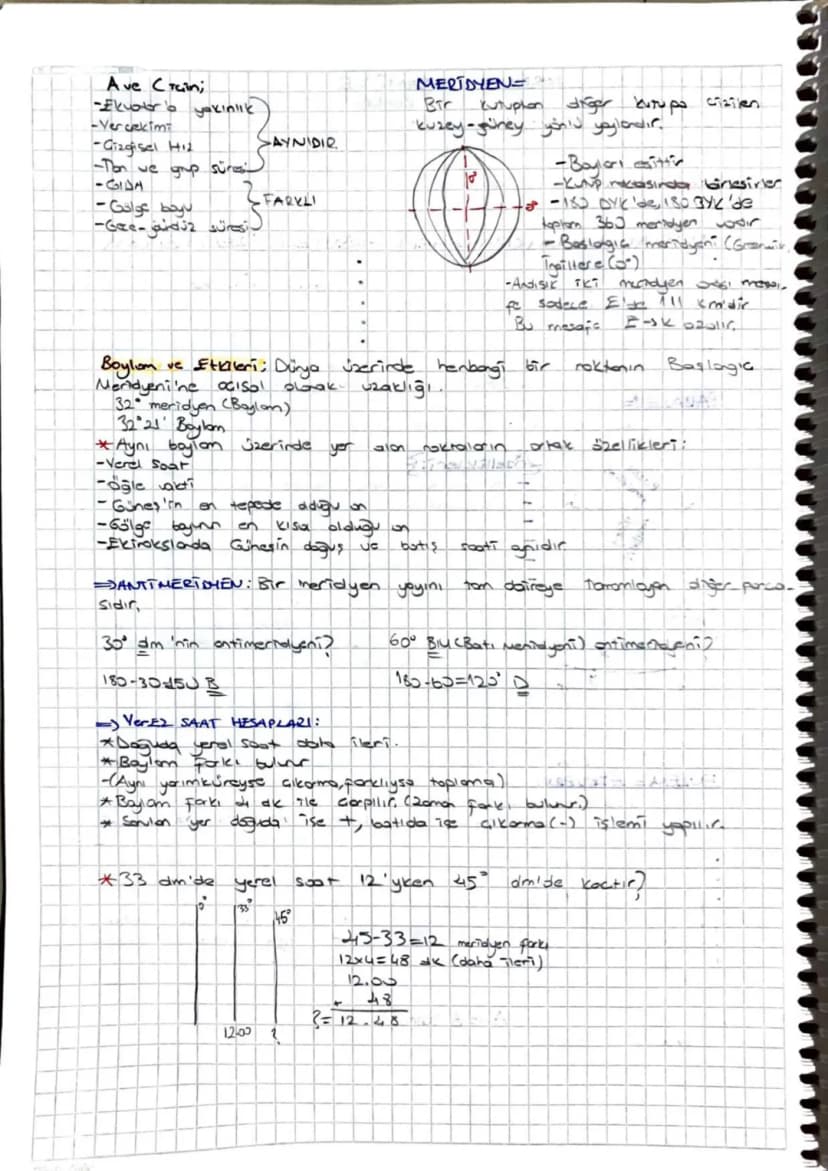 A ve C için;
-Ekvator'a yakınlık
-Yerçekimi
-Çizgisel Hız
-Tan ve grup süresi
AYNIDIR
-GIDA
-Gölge boyu
-Gece-gündüz süresi
FARKLI
MERİDYEN=
Bir kutuptan diğer kutupa çizilen
kuzey-güney yönlü yaylardır.
0°
0°
-Boyları eşittir
-Kutup noktasında birleşirler
-180 DYK'de, 180 BYK'de
toplam 360 meridyen vardır
-Baslagıç meridyeni (Greenwi
İngiltere (0°)
-Ardışık iki meridyen arası mesa-
fe sadece E'de 111 km'dir
Bu mesafe E→K azalır.
Boylam ve Etkileri: Dünya üzerinde herhangi bir noktanın Baslagıç
Meridyeni'ne açısal olarak uzaklığı.
32° meridyen (Boylam)
32°21' Boylam
*Aynı boylam üzerinde yer alan noktaların ortak özellikleri:
-Yerel Saat
-Öğle vakti
-Güneş'in en tepede olduğu an
-Gölge boyunun en kısa olduğu an
-Ekinokslarda Güneşin doğuş ve batış saati aynıdır
⇒ANTİMERİDYEN: Bir meridyen yayını tam daireye tamamlayan diğer parça-
sıdır.
30° dm'nin antimeridyeni?
60° BM (Batı Meridyeni) antimeridyeni?
180-30=150 B
180-60=120° D
⇒YEREL SAAT HESAPLARI:
*Doğuda yerel saat daha ileri.
*Boylam farkı bulunur
-(Aynı yarımküreyse çıkarma, farklıysa toplama)
*Boylam farkı 4 dk ile çarpılır. (Zaman farkı bulunur.)
*Sorulan yer doğuda ise +, batıda ise çıkarma(-) işlemi yapılır.
*33 dm'de yerel saat 12'yken 45° dm'de kaçtır?
0°
33°
45°
12.00
?
45-33=12 meridyen farkı
12x4=48 dk (daha ileri)
12.00
+ 48
?= 12.48